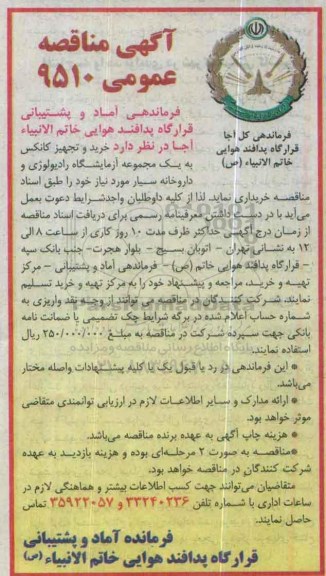 آگهی مناقصه
عمومی ۹۵۱۰
فرماندهی کل آجا
قرارگاه پدافند هوایی
خاتم الانبیاء (ص)
فرماندهی آماد و پشتیبانی
قرارگاه پدافند هوایی خاتم الانبیاء
آجا در نظر دارد خرید و تجهیز کانکس
به یک مجموعه آزمایشگاه رادیولوژی و
داروخانه سیار مورد نیاز خود را طبق اسناد
مناقصه خریداری نماید. لذا از کلیه داوطلبان واجدشرایط دعوت بعمل
می‌آید با در دست داشتن معرفینامه رسمی برای دریافت اسناد مناقصه
از زمان درج آگهی حداکثر ظرف مدت ۱۰ روز کاری از ساعت ۸ الی
۱۲ به نشانی تهران - اتوبان بسیج - بلوار هجرت- جنب بانک سپه
- قرارگاه پدافند هوایی خاتم (ص)- فرماندهی آماد و پشتیبانی - مرکز
تهیه و خرید، مراجعه و پیشنهاد خود را به مرکز تهیه و خرید تسلیم
نمایند. شرکت کنندگان در مناقصه می توانند از وجه نقد واریزی به
شماره حساب اعلام شده در برگه شرایط چک تضمینی یا ضمانت نامه
بانکی جهت سپرده شرکت در مناقصه به مبلغ ۲۵۰/۰۰۰/۰۰۰ ریال
استفاده نمایند.
● این فرماندهی در رد یا قبول یک یا کلیه پیشنهادات واصله مختار
می‌باشد.
● ارائه مدارک و سایر اطلاعات لازم در ارزیابی توانمندی متقاضی
موثر خواهد بود.
● هزینه چاپ آگهی به عهده برنده مناقصه می‌باشد.
●مناقصه به صورت ۲ مرحله‌ای بوده و هزینه بازدید به عهده
شرکت کنندگان در مناقصه خواهد بود.
متقاضیان می‌توانند جهت کسب اطلاعات بیشتر و هماهنگی لازم در
ساعات اداری با شماره تلفن ۳۳۲۴۰۲۳۶ و ۳۵۹۲۲۰۵۷ تماس
حاصل نمایند.
فرمانده آماد و پشتیبانی
قرارگاه پدافند هوایی خاتم الانبیاء (ص)